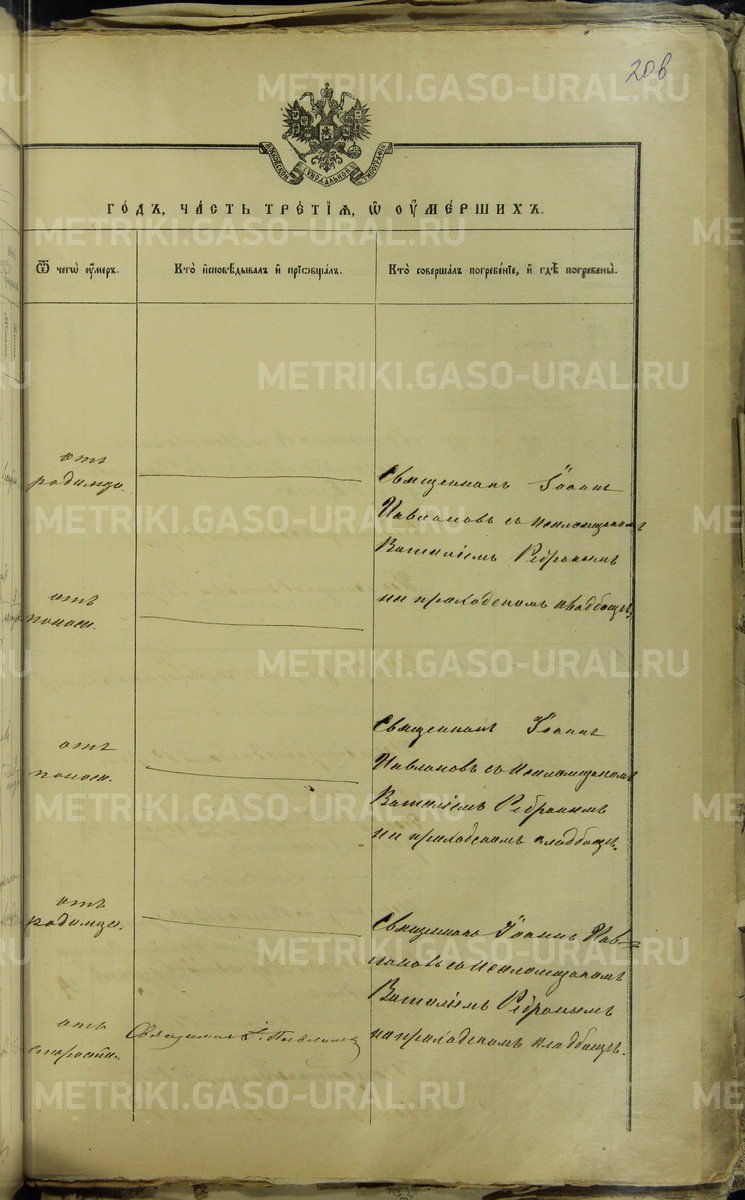 206
МОСКОВСКОЙ СѴНОДАЛЬНОЙ ТИПОГРАФІИ
ГОДЪ, ЧАСТЬ ТРЕТІЯ, Ѡ ОУМЕРШИХЪ.
Ѿ чегѡ оумеръ.
Кто исповѣдывалъ и прїобщалъ.
Кто совершалъ погребеніе, и гдѣ погребены.
отъ
родимца.
Священникъ Іоаннъ
Павлановъ съ псаломщикомъ
Виталіемъ Ребринымъ
на приходскомъ кладбищѣ.
отъ
поноса.
отъ
поноса.
Священникъ Іоаннъ
Павлановъ съ псаломщикомъ
Виталіемъ Ребринымъ
на приходскомъ кладбищѣ.
отъ
родимца.
Священникъ Іоаннъ Пав=
лановъ съ псаломщикомъ
Виталіемъ Ребринымъ
на приходскомъ кладбищѣ.
отъ
старости.
Священникъ І. Павлановъ
METRIKI.GASO-URAL.RU